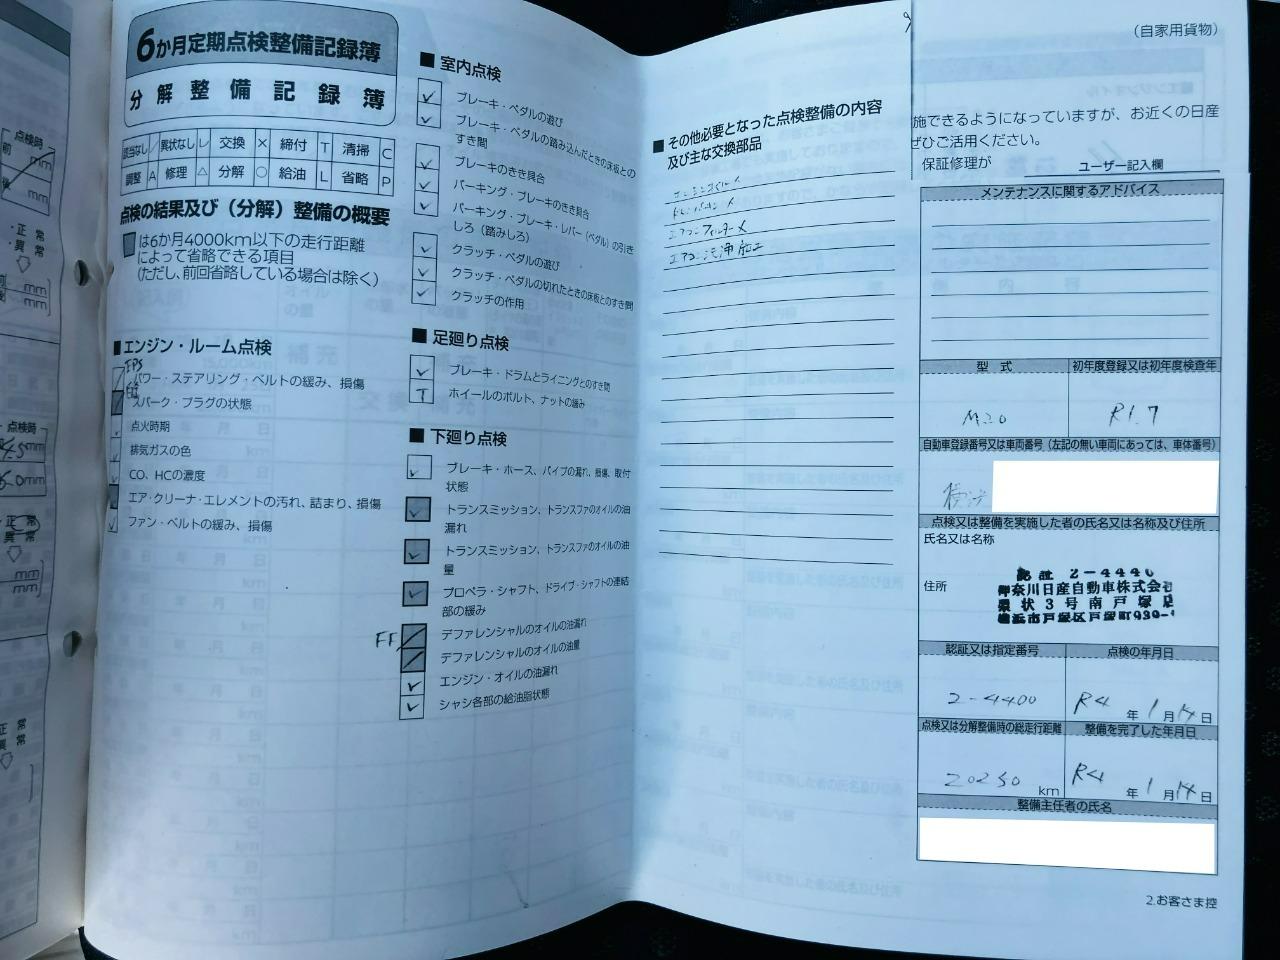 6か月定期点検整備記録簿
分解整備記録簿
該当なし / 異状なし レ 交換 × 締付 T 清掃 C
調整 A 修理 △ 分解 ○ 給油 L 省略 P
点検の結果及び（分解）整備の概要
は6か月4000km以下の走行距離
によって省略できる項目
(ただし、前回省略している場合は除く)
■ エンジン・ルーム点検
EPS
パワー・ステアリング・ベルトの緩み、損傷
スパーク・プラグの状態
点火時期
排気ガスの色
CO、HCの濃度
エア・クリーナ・エレメントの汚れ、詰まり、損傷
ファン・ベルトの緩み、損傷
■ 室内点検
ブレーキ・ペダルの遊び
ブレーキ・ペダルの踏み込んだときの床板との
すき間
ブレーキのきき具合
パーキング・ブレーキのきき具合
パーキング・ブレーキ・レバー(ペダル)の引き
しろ（踏みしろ）
クラッチ・ペダルの遊び
クラッチ・ペダルの切れたときの床板とのすき間
クラッチの作用
■ 足廻り点検
ブレーキ・ドラムとライニングとのすき間
T ホイールのボルト、ナットの緩み
■ 下廻り点検
ブレーキ・ホース、パイプの漏れ、損傷、取付
状態
トランスミッション、トランスファのオイルの油
漏れ
トランスミッション、トランスファのオイルの油
量
プロペラ・シャフト、ドライブ・シャフトの連結
部の緩み
FF デファレンシャルのオイルの油漏れ
デファレンシャルのオイルの油量
エンジン・オイルの油漏れ
シャシ各部の給油脂状態
■ その他必要となった点検整備の内容
及び主な交換部品
エンジンオイル ×
ドレンパッキン ×
エアコンフィルター ×
エアコン洗浄施工
(自家用貨物)
施できるようになっていますが、お近くの日産
ぜひご活用ください。
保証修理が
ユーザー記入欄
メンテナンスに関するアドバイス
型 式 初年度登録又は初年度検査年
M20 R1.7
自動車登録番号又は車両番号（左記の無い車両にあっては、車体番号）
横浜
点検又は整備を実施した者の氏名又は名称及び住所
氏名又は名称
住所
認証 2-4440
神奈川日産自動車株式会社
環状3号南戸塚店
横浜市戸塚区戸塚町930-
認証又は指定番号 点検の年月日
2-4400 R4 年 1 月 14 日
点検又は分解整備時の総走行距離 整備を完了した年月日
20250 km R4 年 1 月 14 日
整備主任者の氏名
2.お客さま控
点検時
前 mm
後 mm
・正 常
・異 常
mm
mm
点検時
4.5mm
mm
正 常
異 常
mm
mm